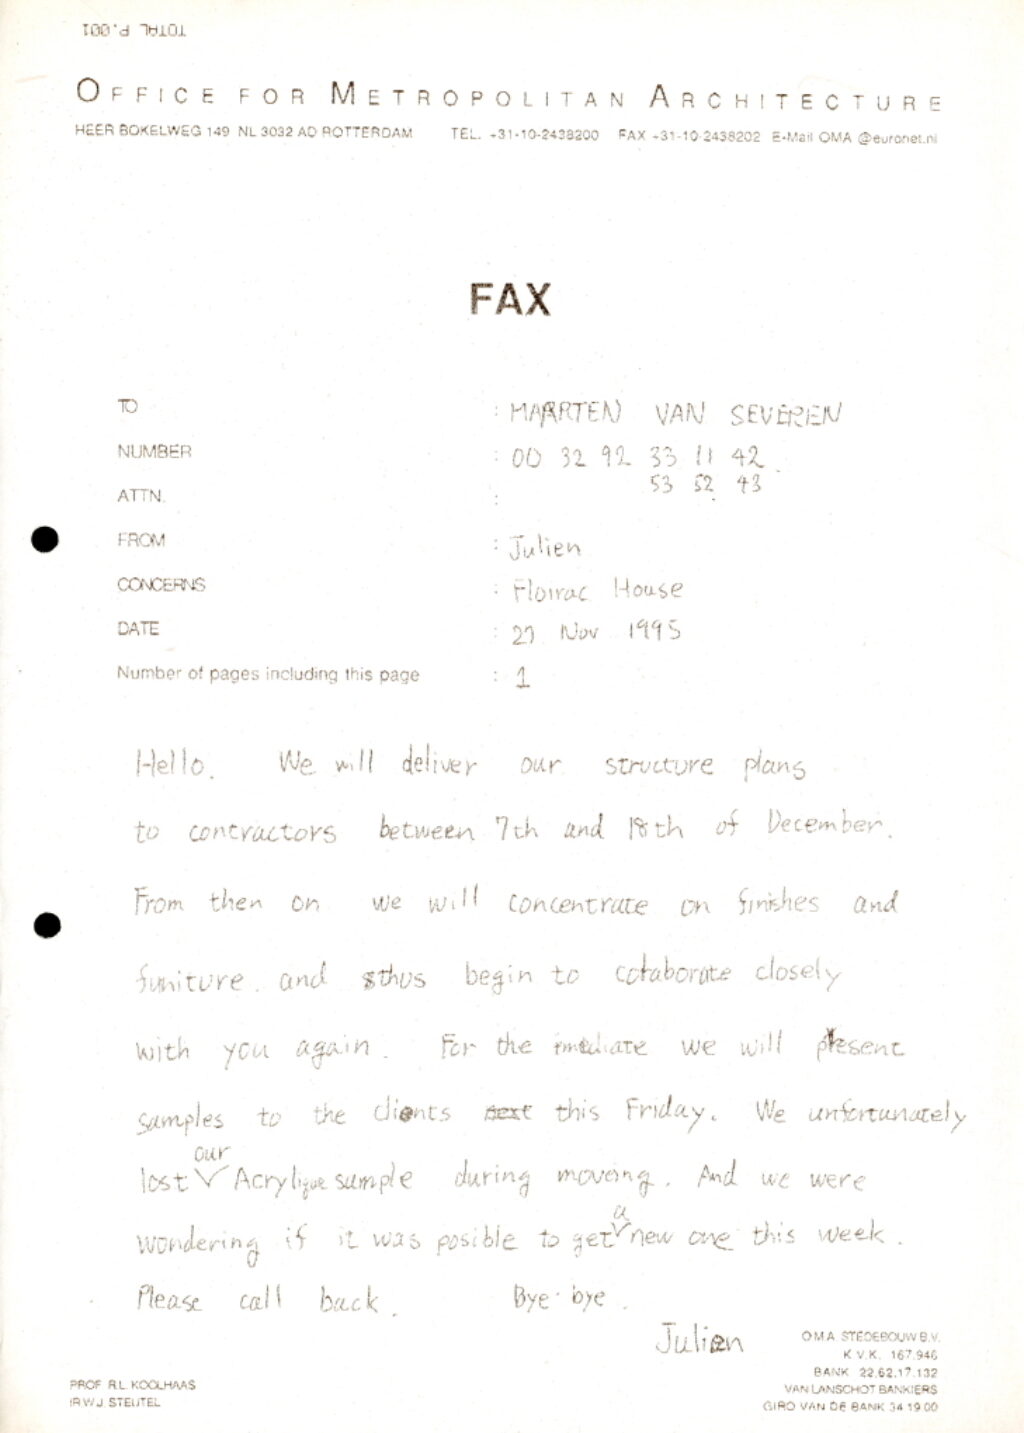 TOTAL P.001
OFFICE FOR METROPOLITAN ARCHITECTURE
HEER BOKELWEG 149 NL 3032 AD ROTTERDAM TEL. +31-10-2438200 FAX +31-10-2438202 E-Mail OMA @euronet.nl
FAX
TO : MAARTEN VAN SEVEREN
NUMBER : 00 32 92 33 11 42
53 52 43
ATTN. :
FROM : Julien
CONCERNS : Floirac House
DATE : 27 Nov 1995
Number of pages including this page : 1
Hello. We will deliver our structure plans
to contractors between 7th and 18th of December.
From then on we will concentrate on finishes and
funiture. and thus begin to colaborate closely
with you again. For the imediate we will present
samples to the clients next this Friday. We unfortunately
lost our Acrylique sample during moving. And we were
wondering if it was posible to get a new one this week.
Please call back. Bye bye.
Julien
OMA STEDEBOUW B.V.
K.V.K. 167.946
BANK 22.62.17.132
VAN LANSCHOT BANKIERS
GIRO VAN DE BANK 34 19 00
PROF R.L. KOOLHAAS
IR.W.J. STEUTEL